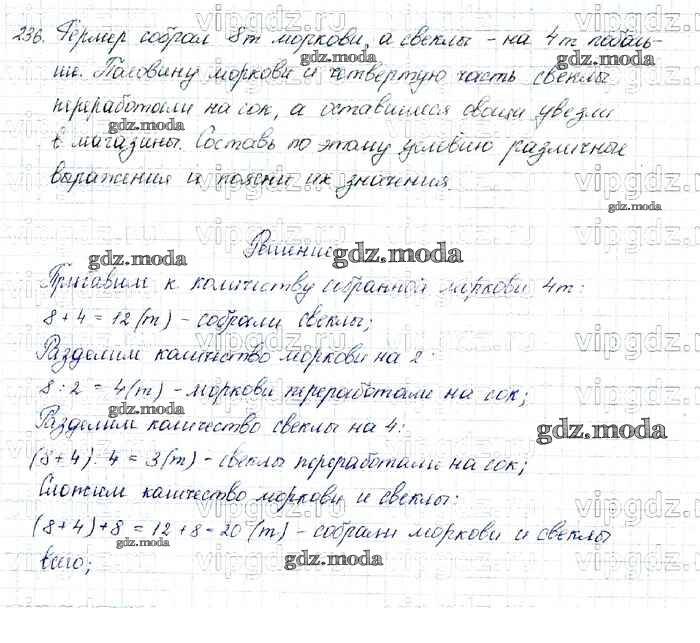 236. Фермер собрал 8т моркови, а свеклы - на 4т поболь-
ше. Половину моркови и четвертую часть свеклы
переработали на сок, а оставшиеся овощи увезли
в магазины. Составь по этому условию различные
выражения и поясни их значения.
Решение
Прибавим к количеству собранной моркови 4т:
8 + 4 = 12 (т) - собрали свеклы;
Разделим количество моркови на 2:
8 : 2 = 4 (т) - моркови переработали на сок;
Разделим количество свеклы на 4:
(8 + 4) : 4 = 3 (т) - свеклы переработали на сок;
Сложим количество моркови и свеклы:
(8 + 4) + 8 = 12 + 8 = 20 (т) - собрали моркови и свеклы
всего;
gdz.moda
vipgdz.ru